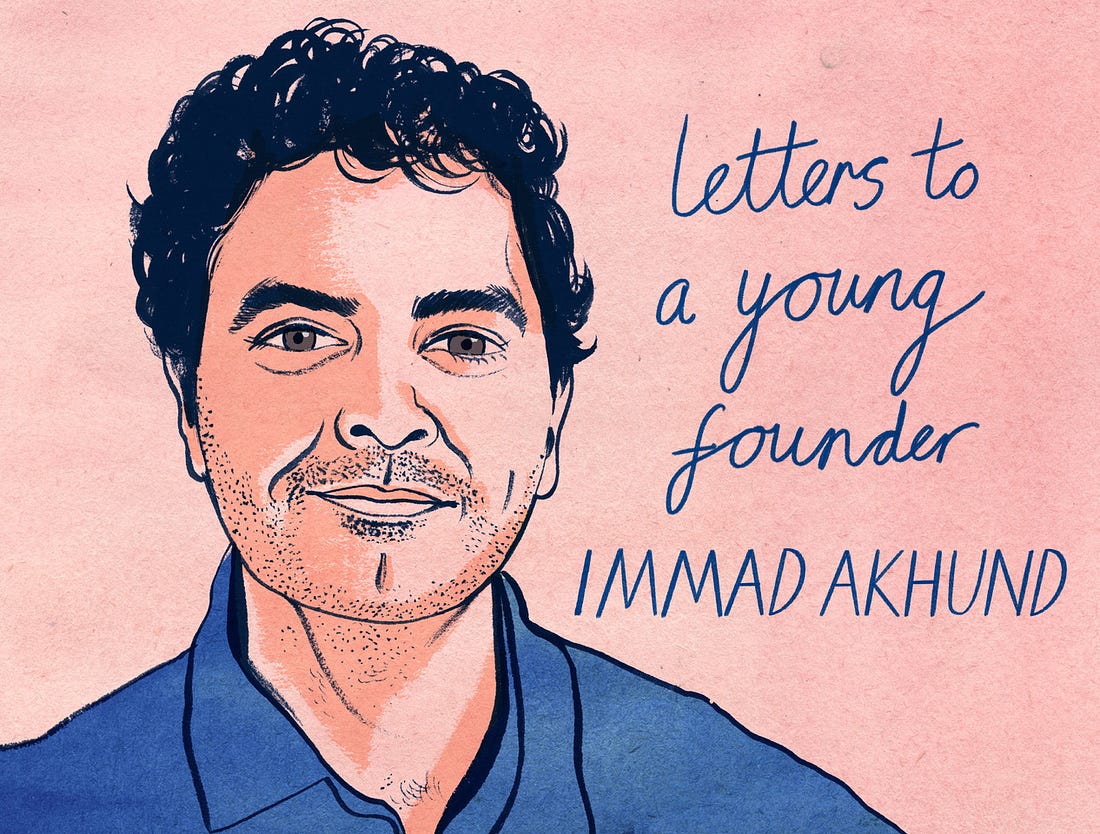 letters to
a young
founder
IMMAD AKHUND